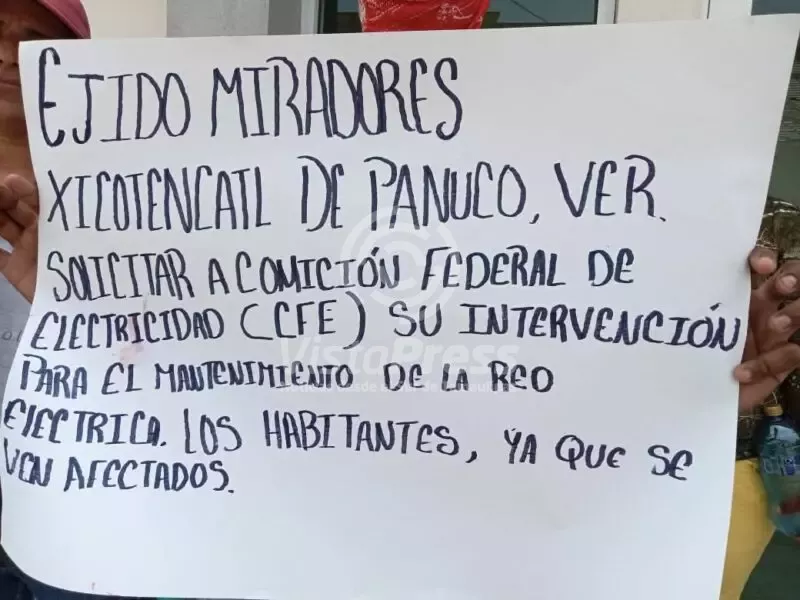 EJIDO MIRADORES
XICOTENCATL DE PANUCO, VER.
SOLICITAR A COMICIÓN FEDERAL DE
ELECTRICIDAD (CFE) SU INTERVENCIÓN
PARA EL MANTENIMIENTO DE LA RED
ELECTRICA. LOS HABITANTES, YA QUE SE
VEN AFECTADOS.
VistaPress